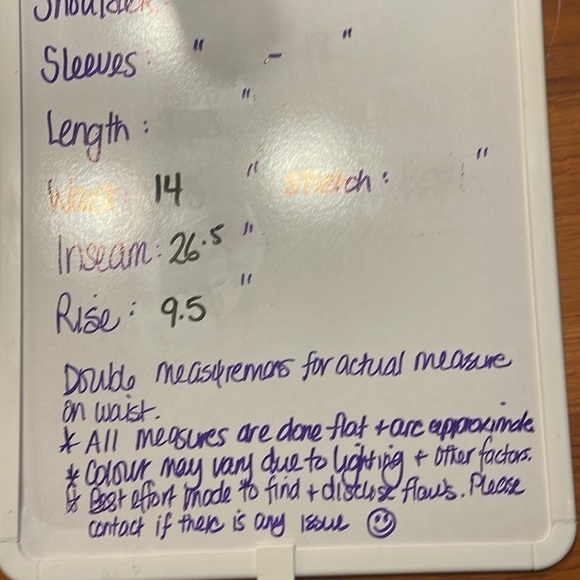 Shoulder
Sleeves " - "
Length : "
Waist : 14 " Stretch : "
Inseam : 26.5 "
Rise : 9.5 "
Double measuremens for actual measure
on waist.
* All measures are done flat + are approximate.
* Colour may vary due to lighting + other factors.
* Best effort made to find + disclose flaws. Please
contact if there is any issue ☺